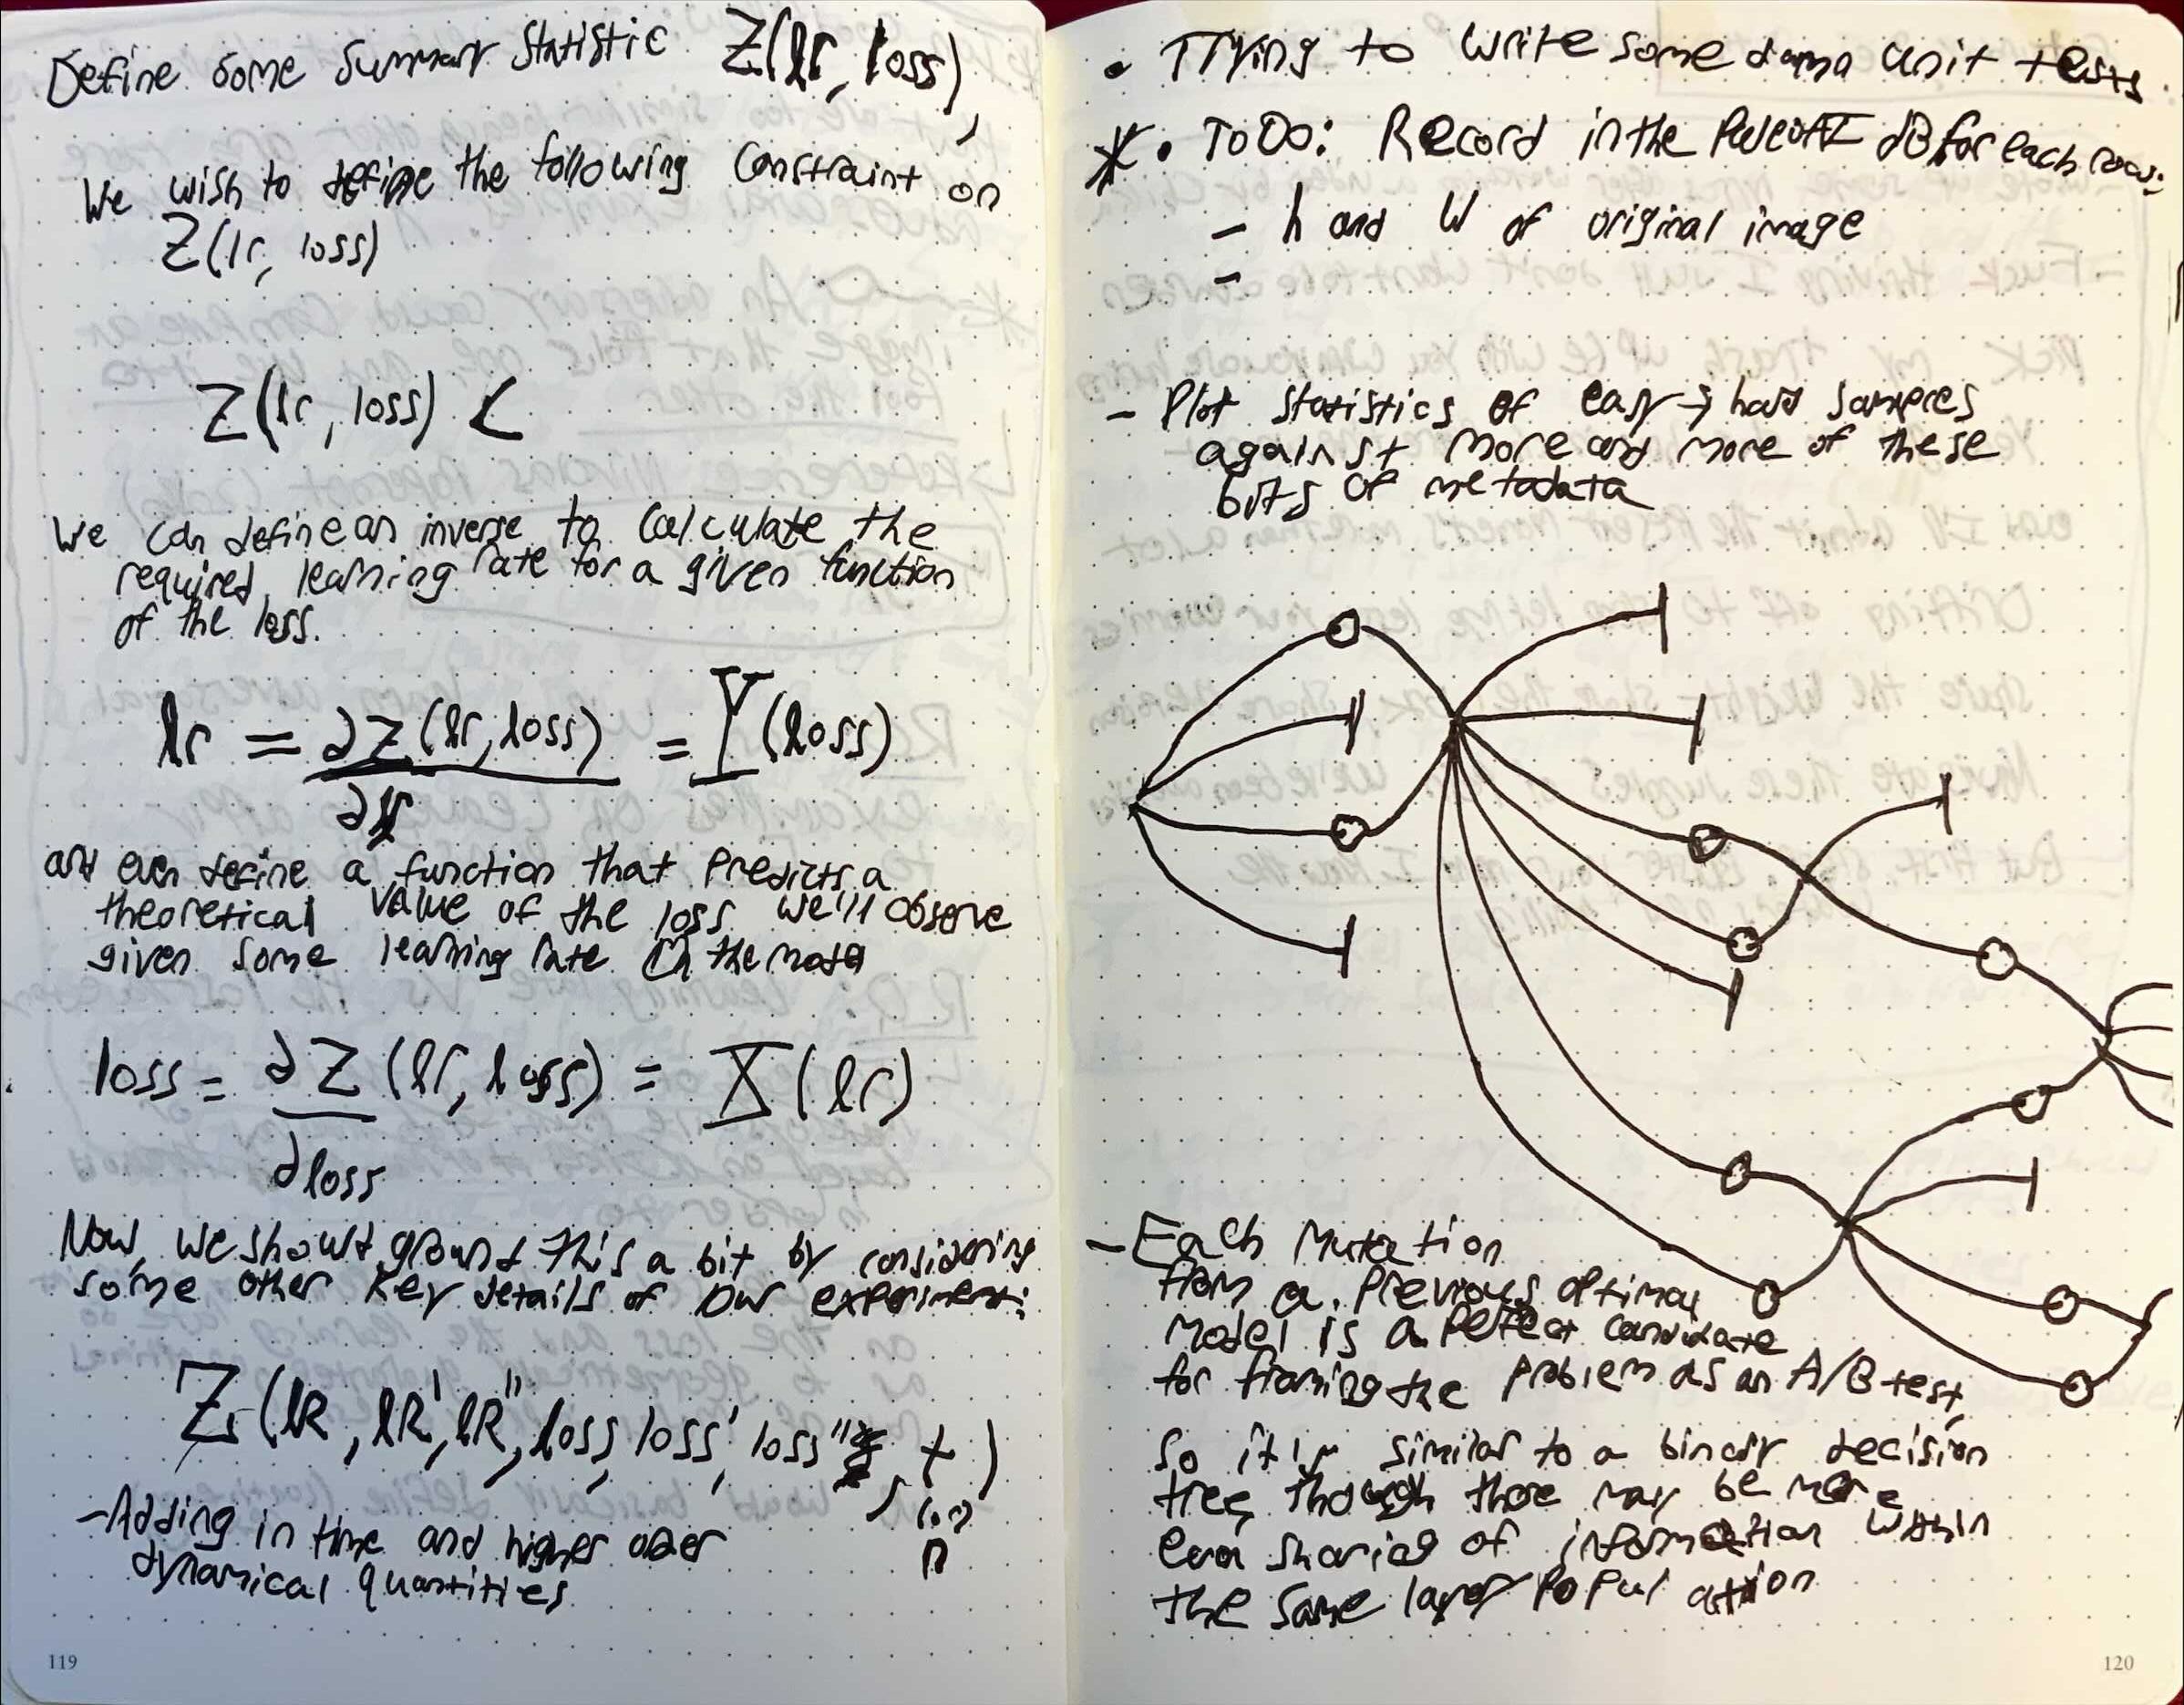 Define some Summary Statistic Z(lr, loss),
We wish to define the following constraint on
Z(lr, loss)
Z(lr, loss) <
We can define an inverse to calculate the
required learning rate for a given function
of the loss.
lr = ∂Z(lr, loss) = Y(loss)
∂lr
and even define a function that predicts a
theoretical value of the loss we'll observe
given some learning rate in the
loss = ∂Z(lr, loss) = X(lr)
∂loss
Now, we should ground this a bit by considering
some other key details of our experiment:
Z(lR, lR', lR'', loss, loss', loss'', t)
n
-Adding in time and higher order
dynamical quantities
119
• Trying to write some damn unit tests.
* • ToDo: Record in the PaleoAI dB for each row:
- h and w of original image
-
- Plot statistics of easy → hard samples
against more and more of these
bits of metadata
- Each Mutation
from a previous optimal
model is a perfect candidate
for framing the problem as an A/B test,
So it is similar to a binary decision
tree, though there may be more
even sharing of information within
the same layer population
120